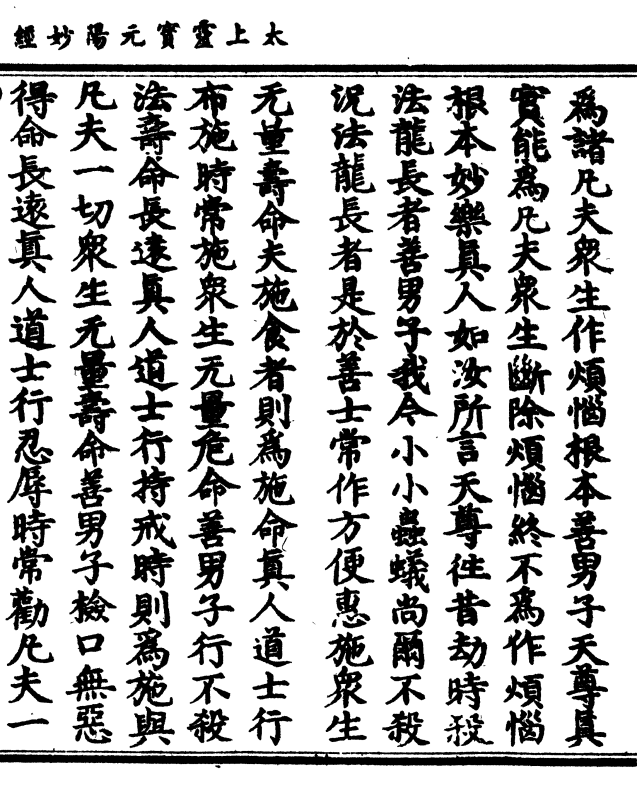 太上靈寶元陽妙經
為諸凡夫眾生作煩惱根本善男子天尊真
實能為凡夫眾生斷除煩惱終不為作煩惱
根本妙樂真人如汝所言天尊徃昔劫時殺
法龍長者善男子我今小小蟲蟻尚爾不殺
況法龍長者是於善士常作方便惠施眾生
无量壽命夫施食者則為施命真人道士行
布施時常施眾生无量危命善男子行不殺
法壽命長遠真人道士行持戒時則為施與
凡夫一切眾生无量壽命善男子檢口無惡
得命長遠真人道士行忍辱時常勸凡夫一